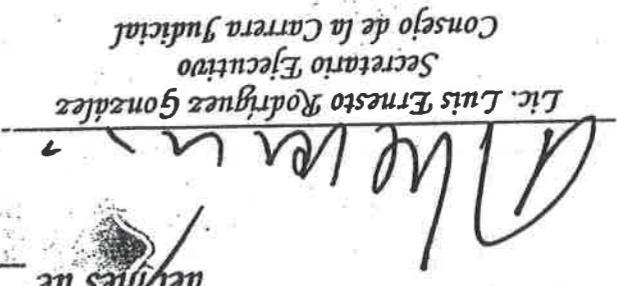 del mes de
Lic. Luis Ernesto Rodríguez González
Secretario Ejecutivo
Consejo de la Carrera Judicial